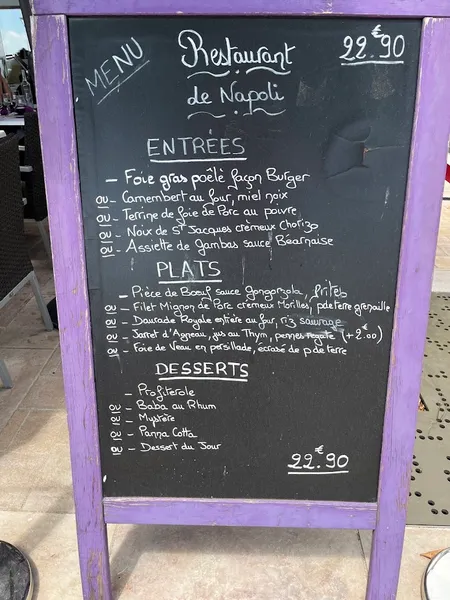 MENU
Restaurant
22.€90
de Napoli
ENTRÉES
– Foie gras poêlé façon Burger
ou – Camembert au four, miel noix
ou – Terrine de foie de Porc au poivre
ou – Noix de St Jacques crémeux Chorizo
ou – Assiette de Gambas sauce Béarnaise
PLATS
– Pièce de Bœuf sauce Gongonzola, frites
ou – Filet Mignon de Porc crémeux Morilles, p de terre grenaille
ou – Daurade Royale entière au four, riz sauvage
ou – Jarret d'Agneau, jus au Thym, pennes regate (+2.€00)
ou – Foie de Veau en persillade, écrasé de p de terre
DESSERTS
– Profiterole
ou – Baba au Rhum
ou – Mystère
ou – Panna Cotta
ou – Dessert du Jour
22.€90